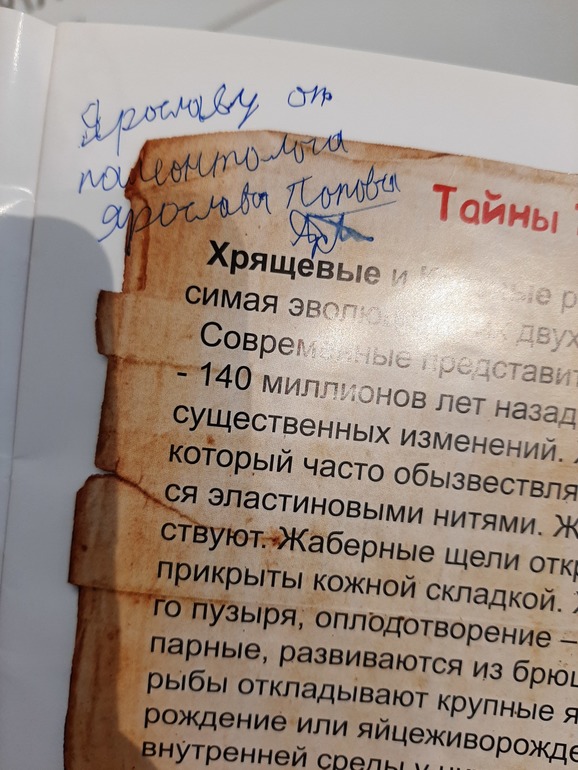 Ярославу от
палеонтолога
Ярослава Попова
Тайны
Хрящевые и
симая
двух
Современные представит
- 140 миллионов лет назад
существенных изменений.
который часто обызвествля
ся эластиновыми нитями. Ж
ствуют. Жаберные щели откр
прикрыты кожной складкой.
го пузыря, оплодотворение –
парные, развиваются из брюш
рыбы откладывают крупные я
рождение или яйцеживорожде
внутренней среды у